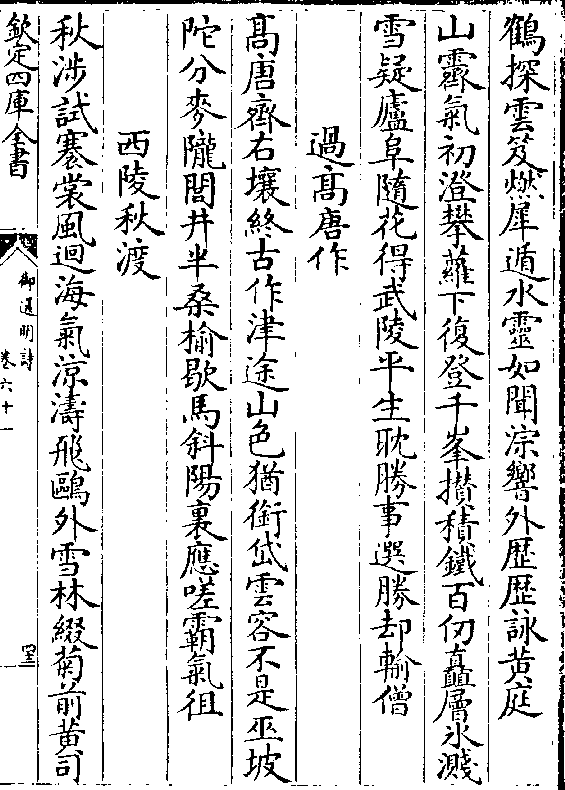 鶴探雲笈燃犀遁水靈如聞淙響外歴歴詠黄庭
山靈氣初澄攀蘿下復登千峯攅積鐵百仞矗層氷濺
雪疑廬阜隨花得武陵平生耽勝事選勝却輸僧
過髙唐作
髙唐齊右壤終古作津途山色猶銜岱雲容不是巫坡
陀分麥隴閭井半桑榆歇馬斜陽裏應嗟霸氣徂
西陵秋渡
秋涉試褰裳風迴海氣涼濤飛鷗外雪林綴菊前黄司
欽定四庫全書
御選明詩
卷六十一